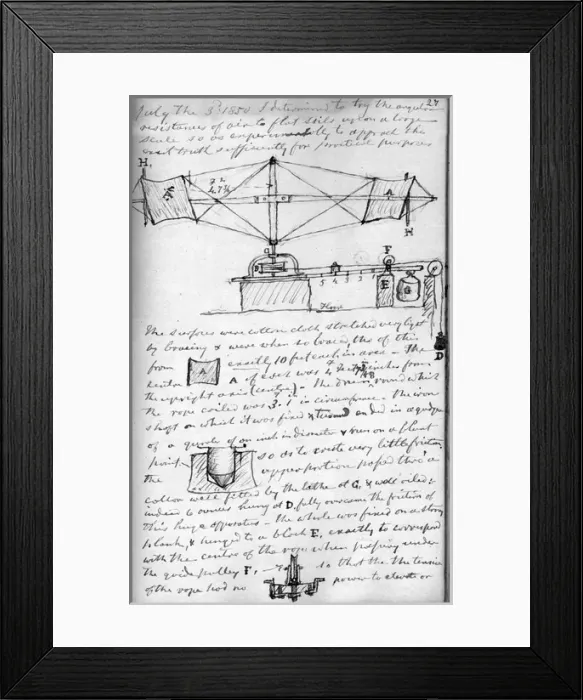 27
July the 3d 1850 I determined to try the angular
resistances of air to flat sails upon a large
scale so as experimentally to approach the
exact truth sufficiently for practical purposes
H,
H
A
A
F
E
G
D
5 4 3 2 1
Floor
The surfaces were cotton cloth stretched very tight
by bracing & were when so braced, thus of this
form exactly 10 feet each in area - The
centre A of each was 4 inches from
the upright axis (centre) - The drum, round which
the rope coiled was 3 in circumference. The iron
shaft on which it was fixed & turned ended in a
of a quarter of an inch in diameter & runs on a flat
point so as to create very little friction
the upper portion passed thro' a
cotton well fitted by the lathe at G, & well oiled &
6 ounces hung at D, fully overcame the friction of
this huge apparatus - the whole was fixed on a strong
plank, & hinged to a block E, exactly to correspond
with the centre of the rope when passing under
the guide pulley F, so that the tension
of the rope had no power to elevate or